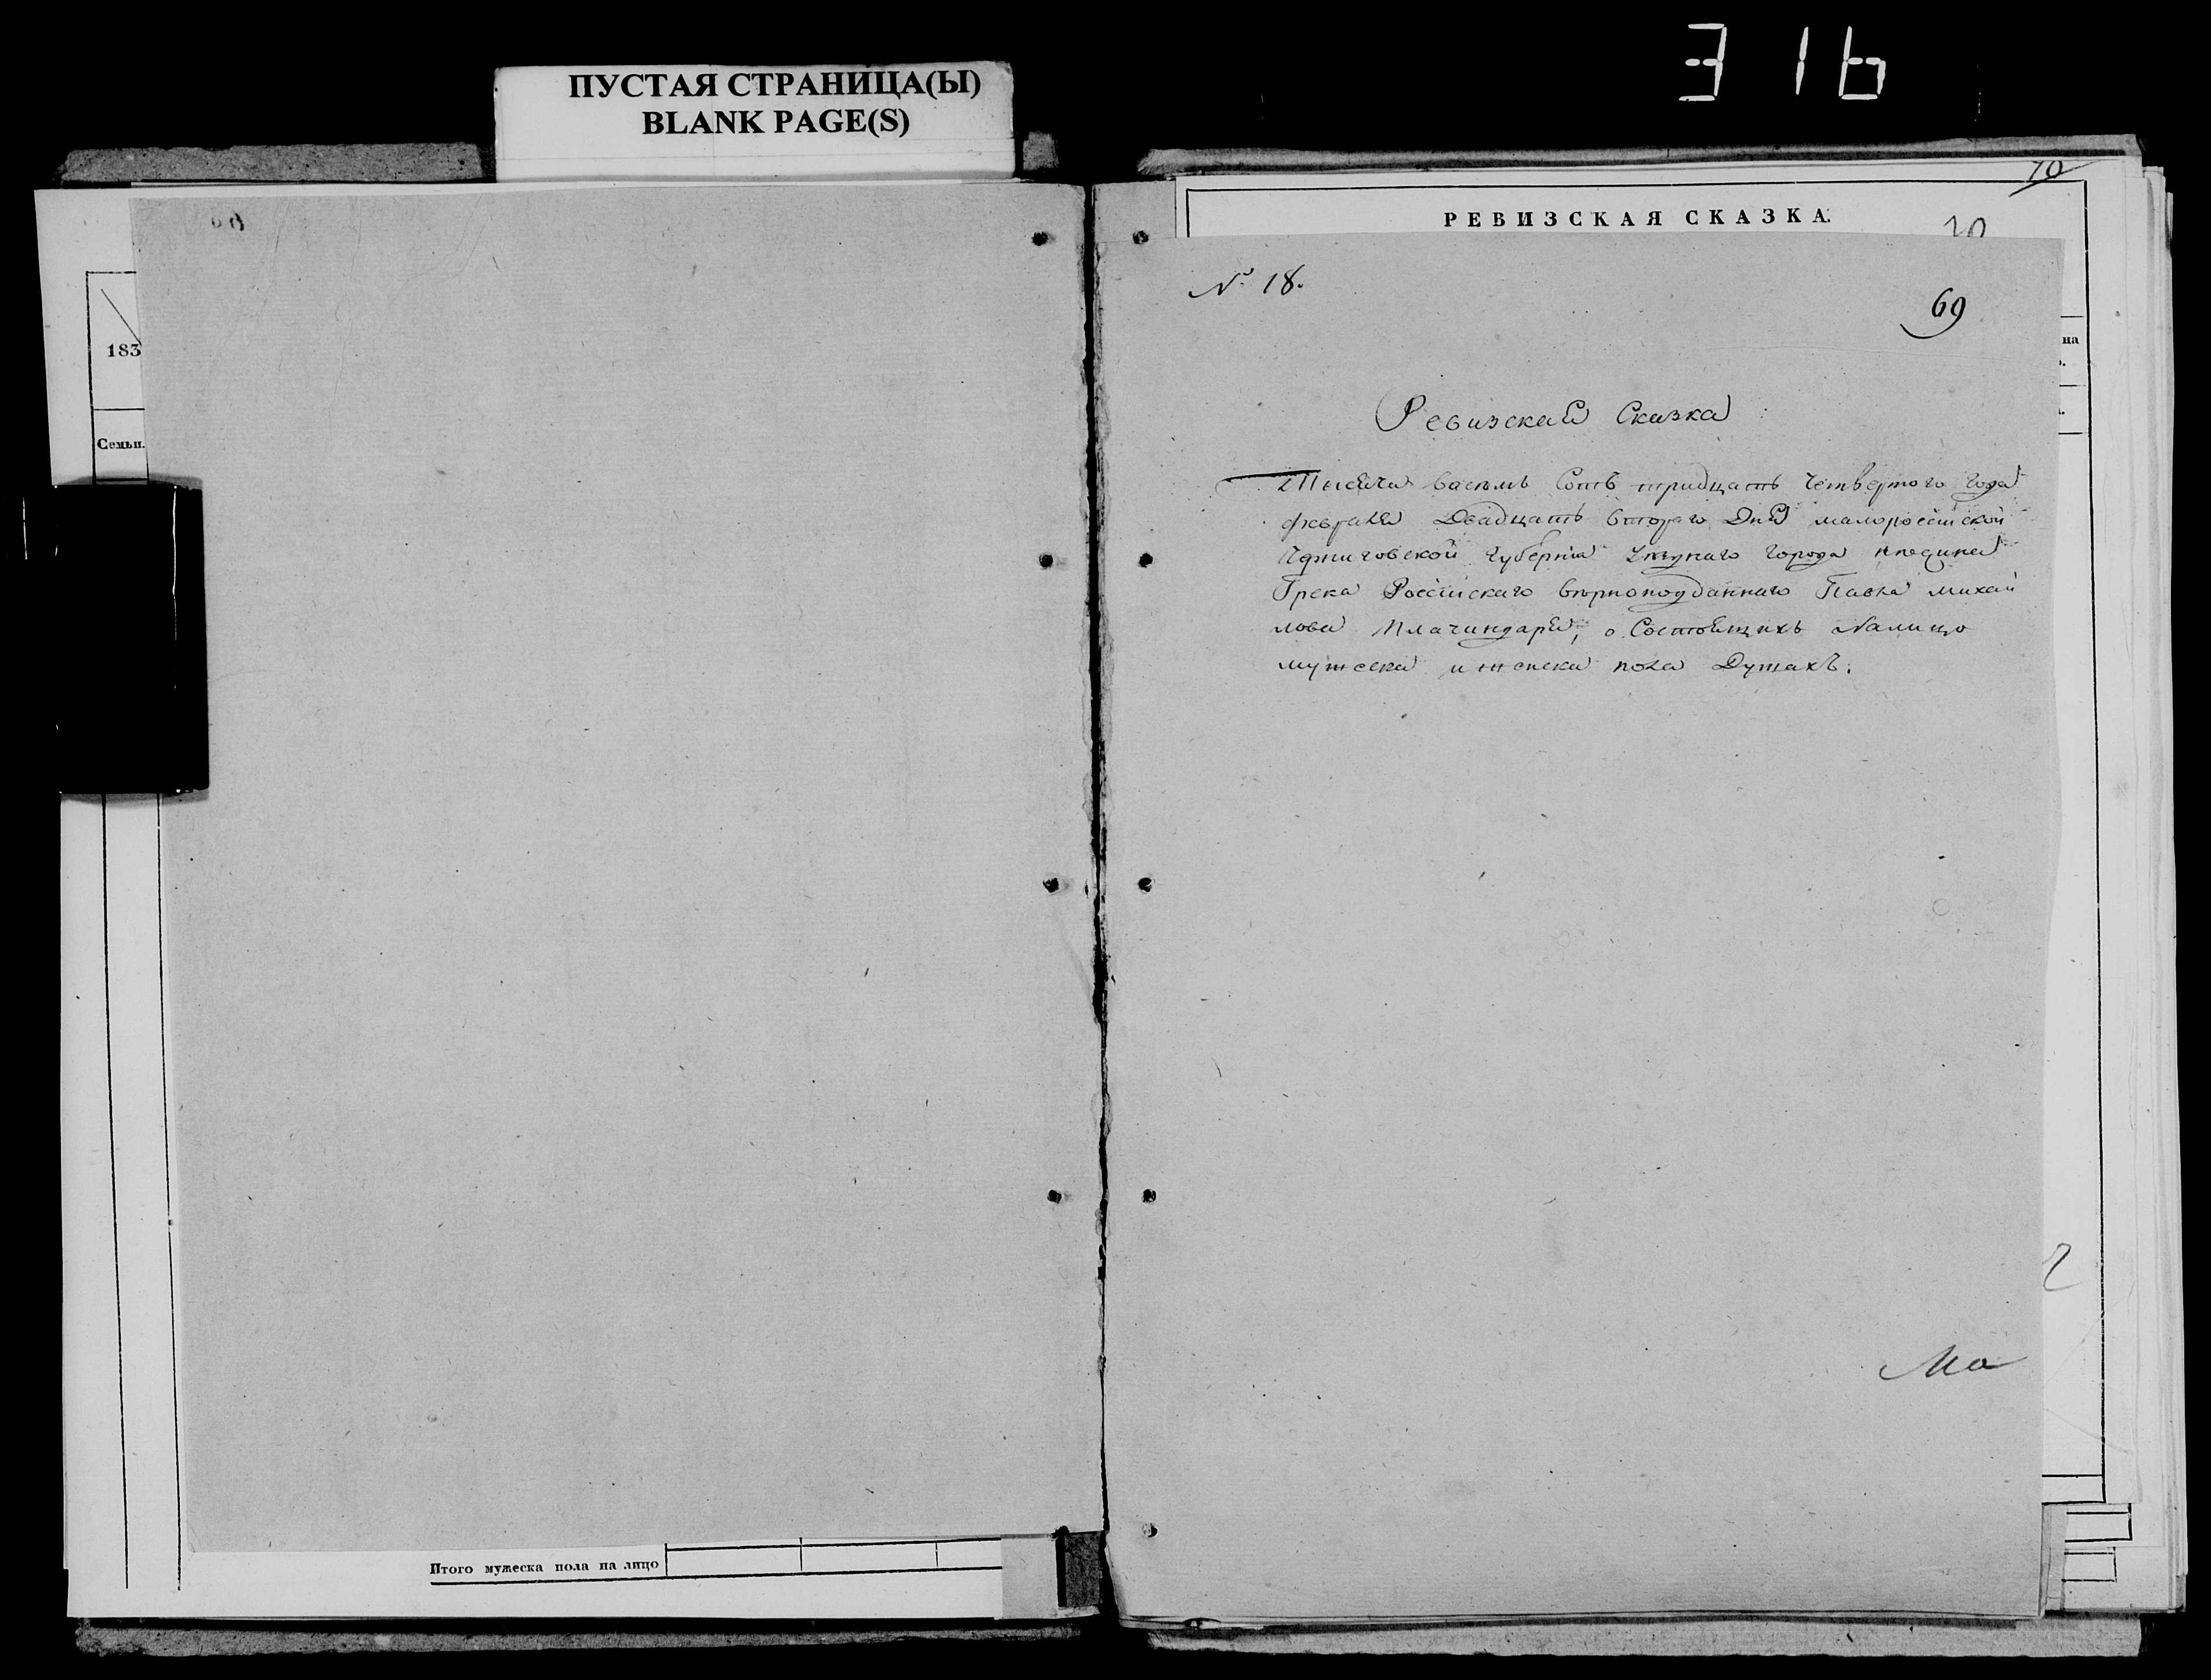 316
ПУСТАЯ СТРАНИЦА(Ы)
BLANK PAGE(S)
183
Семьи.
Итого мужеска пола на лицо
70
РЕВИЗСКАЯ СКАЗКА.
№ 18.
69
на
Ревизская Сказка
Тысяча васемь Сотъ тридцать четвертого года
февраля Двадцать втораго Дня малоросейской
Черниговской губерніи города нѣжина
Грека Росейскаго вѣрноподданнаго Павла михай
лова Плачиндаря, о Состоящихъ Налицо
мужеска и женска пола Душахъ.